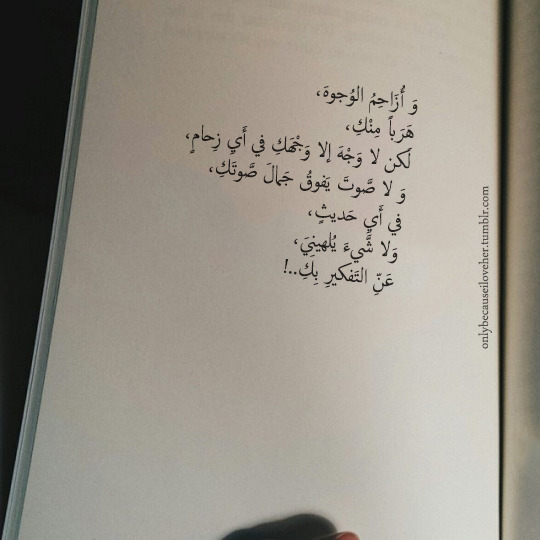 وَ أُزَاحِمُ الوُجوهَ،
هَرَباً مِنْكِ،
لَكن لا وَجْهَ إلا وَجْهَكِ في أَيِ زِحامٍ،
وَ لا صَّوتَ يَفوقُ جَمالَ صَّوتَكِ،
في أَيِ حَديثٍ،
وَلا شَّيءَ يُلهينِيَ،
عَنِّ التَفكيرِ بِكِ..!
onlybecauseiloveher.tumblr.com